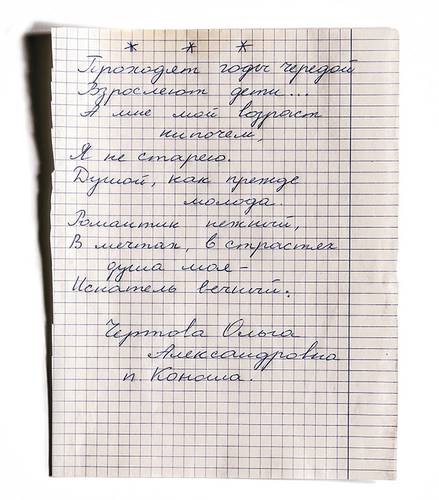 * * *
Проходят годы чередой
Взрослеют дети...
А мне мой возраст
нипочем,
Я не старею.
Душой, как прежде
молода.
Романтик нежный,
В мечтах, в страстях
душа моя -
Искатель вечный.
Чертова Ольга
Александровна
п. Коноша.